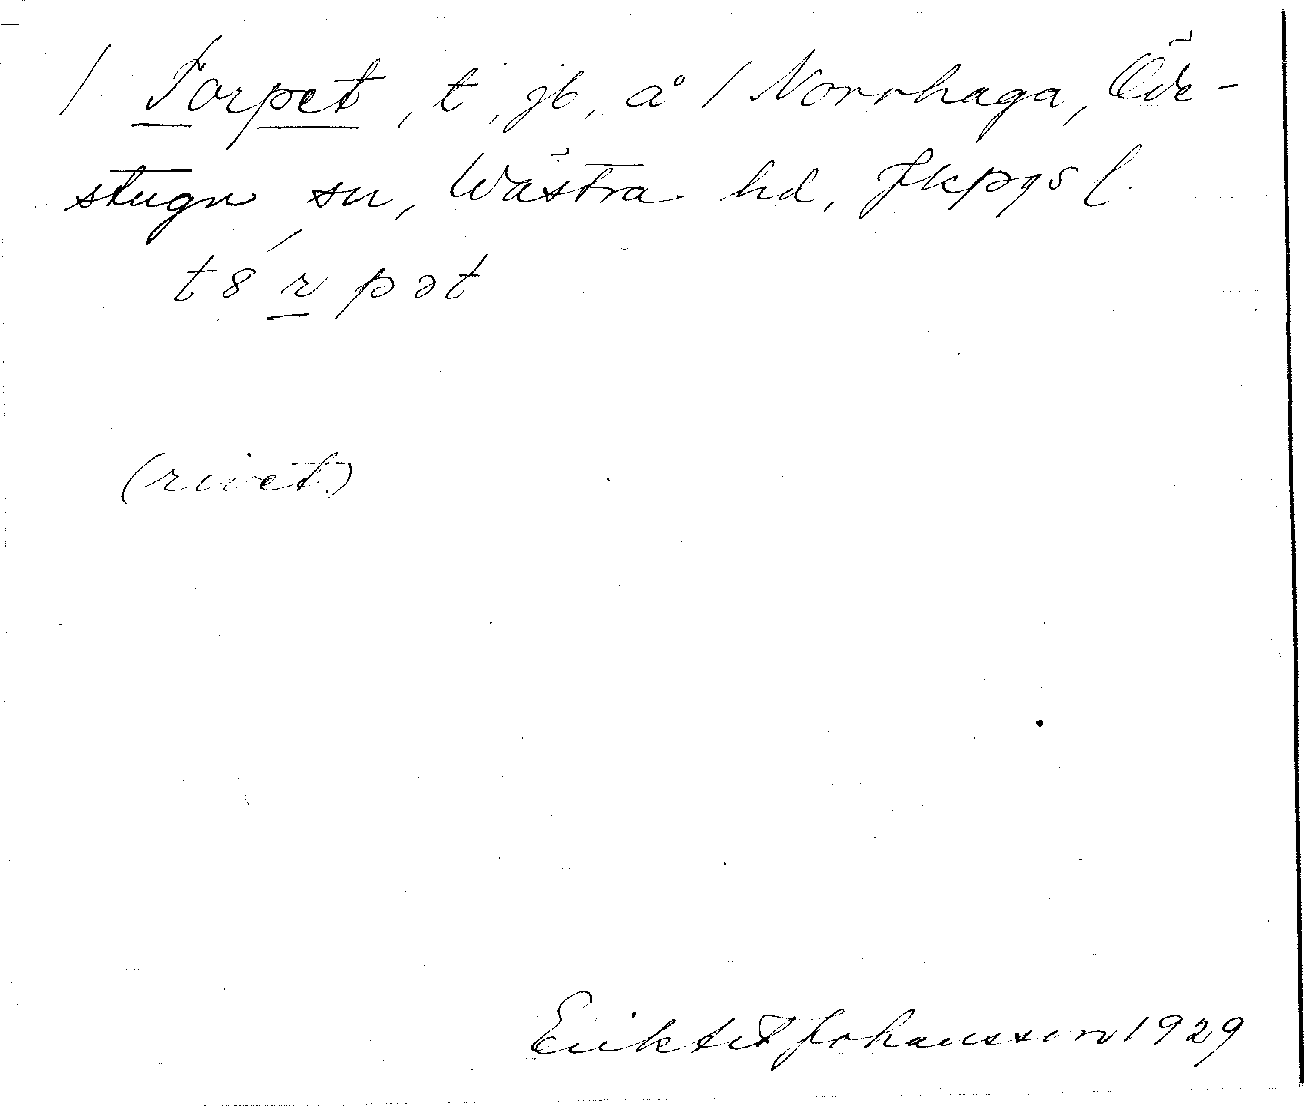 / Torpet, t, jb, å / Norrhaga, Öde-
stugu sn, Wästra hd, Jkpgs l.
t8́rpət
(rivet)
Johansson 1929